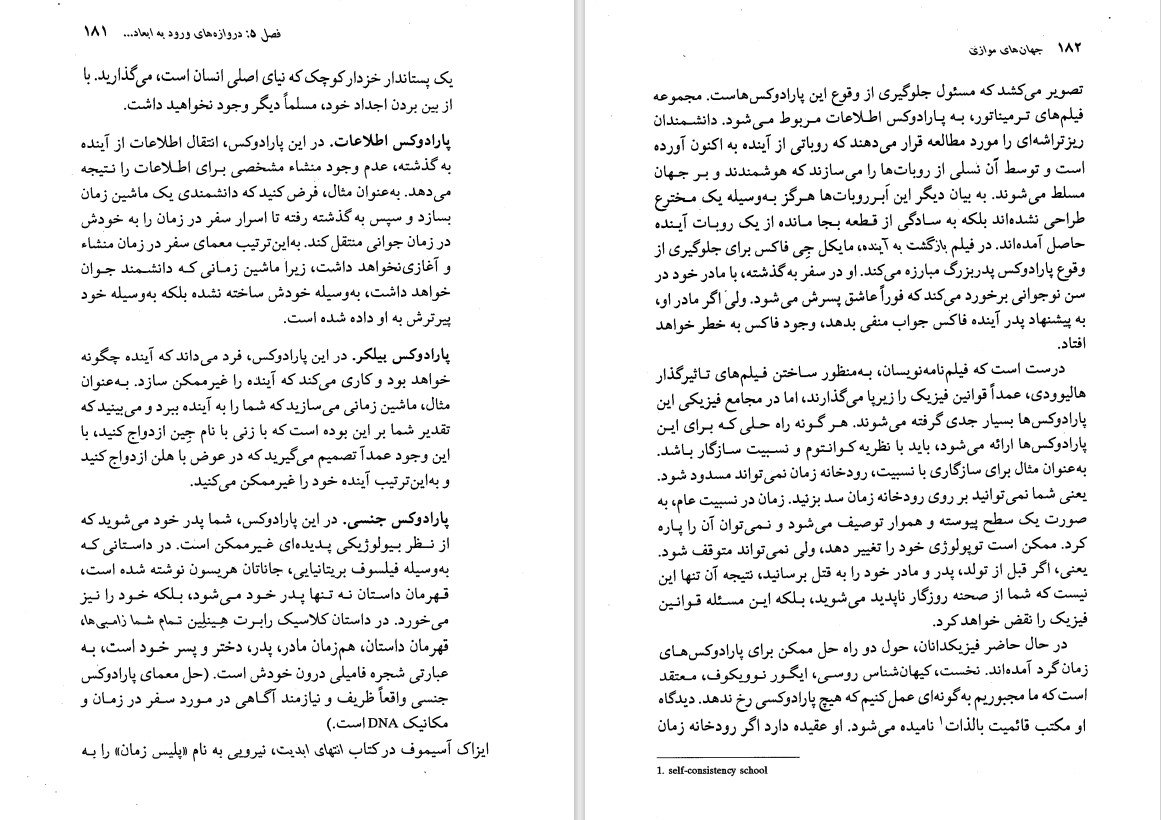 فصل ۵: دروازه‌های ورود به ابعاد... ۱۸۱
یک پستاندار خزدار کوچک که نیای اصلی انسان است، می‌گذارید. با
از بین بردن اجداد خود، مسلماً دیگر وجود نخواهید داشت.
پارادوکس اطلاعات. در این پارادوکس، انتقال اطلاعات از آینده
به گذشته، عدم وجود منشاء مشخصی برای اطلاعات را نتیجه
می‌دهد. به‌عنوان مثال، فرض کنید که دانشمندی یک ماشین زمان
بسازد و سپس به گذشته رفته تا اسرار سفر در زمان را به خودش
در زمان جوانی منتقل کند. به‌این‌ترتیب معمای سفر در زمان منشاء
و آغازی نخواهد داشت، زیرا ماشین زمانی که دانشمند جوان
خواهد داشت، به‌وسیله خودش ساخته نشده بلکه به‌وسیله خود
پیرترش به او داده شده است.
پارادوکس بیلکر. در این پارادوکس، فرد می‌داند که آینده چگونه
خواهد بود و کاری می‌کند که آینده را غیرممکن سازد. به‌عنوان
مثال، ماشین زمانی می‌سازید که شما را به آینده ببرد و می‌بینید که
تقدیر شما بر این بوده است که با زنی با نام جِین ازدواج کنید، با
این وجود عمداً تصمیم می‌گیرید که در عوض با هلن ازدواج کنید
و به‌این‌ترتیب آینده خود را غیرممکن می‌کنید.
پارادوکس جنسی. در این پارادوکس، شما پدر خود می‌شوید که
از نظر بیولوژیکی پدیده‌ای غیرممکن است. در داستانی که
به‌وسیله فیلسوف بریتانیایی، جاناتان هریسون نوشته شده است،
قهرمان داستان نه تنها پدر خود می‌شود، بلکه خود را نیز
می‌خورد. در داستان کلاسیک رابرت هِینلِین تمام شما زامبی‌ها،
قهرمان داستان، هم‌زمان مادر، پدر، دختر و پسر خود است، به
عبارتی شجره فامیلی درون خودش است. (حل معمای پارادوکس
جنسی واقعاً ظریف و نیازمند آگاهی در مورد سفر در زمان و
مکانیک DNA است.)
ایزاک آسیموف در کتاب انتهای ابدیت، نیرویی به نام «پلیس زمان» را به
۱۸۲ جهان‌های موازی
تصویر می‌کشد که مسئول جلوگیری از وقوع این پارادوکس‌هاست. مجموعه
فیلم‌های ترمیناتور، به پارادوکس اطلاعات مربوط می‌شود. دانشمندان
ریزتراشه‌ای را مورد مطالعه قرار می‌دهند که روباتی از آینده به اکنون آورده
است و توسط آن نسلی از روبات‌ها را می‌سازند که هوشمندند و بر جهان
مسلط می‌شوند. به بیان دیگر این اَبرروبات‌ها هرگز به‌وسیله یک مخترع
طراحی نشده‌اند بلکه به سادگی از قطعه بجا مانده از یک روبات آینده
حاصل آمده‌اند. در فیلم بازگشت به آینده، مایکل جِی فاکس برای جلوگیری از
وقوع پارادوکس پدربزرگ مبارزه می‌کند. او در سفر به گذشته، با مادر خود در
سن نوجوانی برخورد می‌کند که فوراً عاشق پسرش می‌شود. ولی اگر مادر او،
به پیشنهاد پدر آینده فاکس جواب منفی بدهد، وجود فاکس به خطر خواهد
افتاد.
درست است که فیلم‌نامه‌نویسان، به‌منظور ساختن فیلم‌های تاثیرگذار
هالیوودی، عمداً قوانین فیزیک را زیرپا می‌گذارند، اما در مجامع فیزیکی این
پارادوکس‌ها بسیار جدی گرفته می‌شوند. هر گونه راه حلی که برای این
پارادوکس‌ها ارائه می‌شود، باید با نظریه کوانتوم و نسبیت سازگار باشد.
به‌عنوان مثال برای سازگاری با نسبیت، رودخانه زمان نمی‌تواند مسدود شود.
یعنی شما نمی‌توانید بر روی رودخانه زمان سد بزنید. زمان در نسبیت عام، به
صورت یک سطح پیوسته و هموار توصیف می‌شود و نمی‌توان آن را پاره
کرد. ممکن است توپولوژی خود را تغییر دهد، ولی نمی‌تواند متوقف شود.
یعنی، اگر قبل از تولد، پدر و مادر خود را به قتل برسانید، نتیجه آن تنها این
نیست که شما از صحنه روزگار ناپدید می‌شوید، بلکه این مسئله قوانین
فیزیک را نقض خواهد کرد.
در حال حاضر فیزیکدانان، حول دو راه حل ممکن برای پارادوکس‌های
زمان گرد آمده‌اند. نخست، کیهان‌شناس روسی، ایگور نوویکوف، معتقد
است که ما مجبوریم به‌گونه‌ای عمل کنیم که هیچ پارادوکسی رخ ندهد. دیدگاه
او مکتب قائمیت بالذات۱ نامیده می‌شود. او عقیده دارد اگر رودخانه زمان
1. self-consistency school